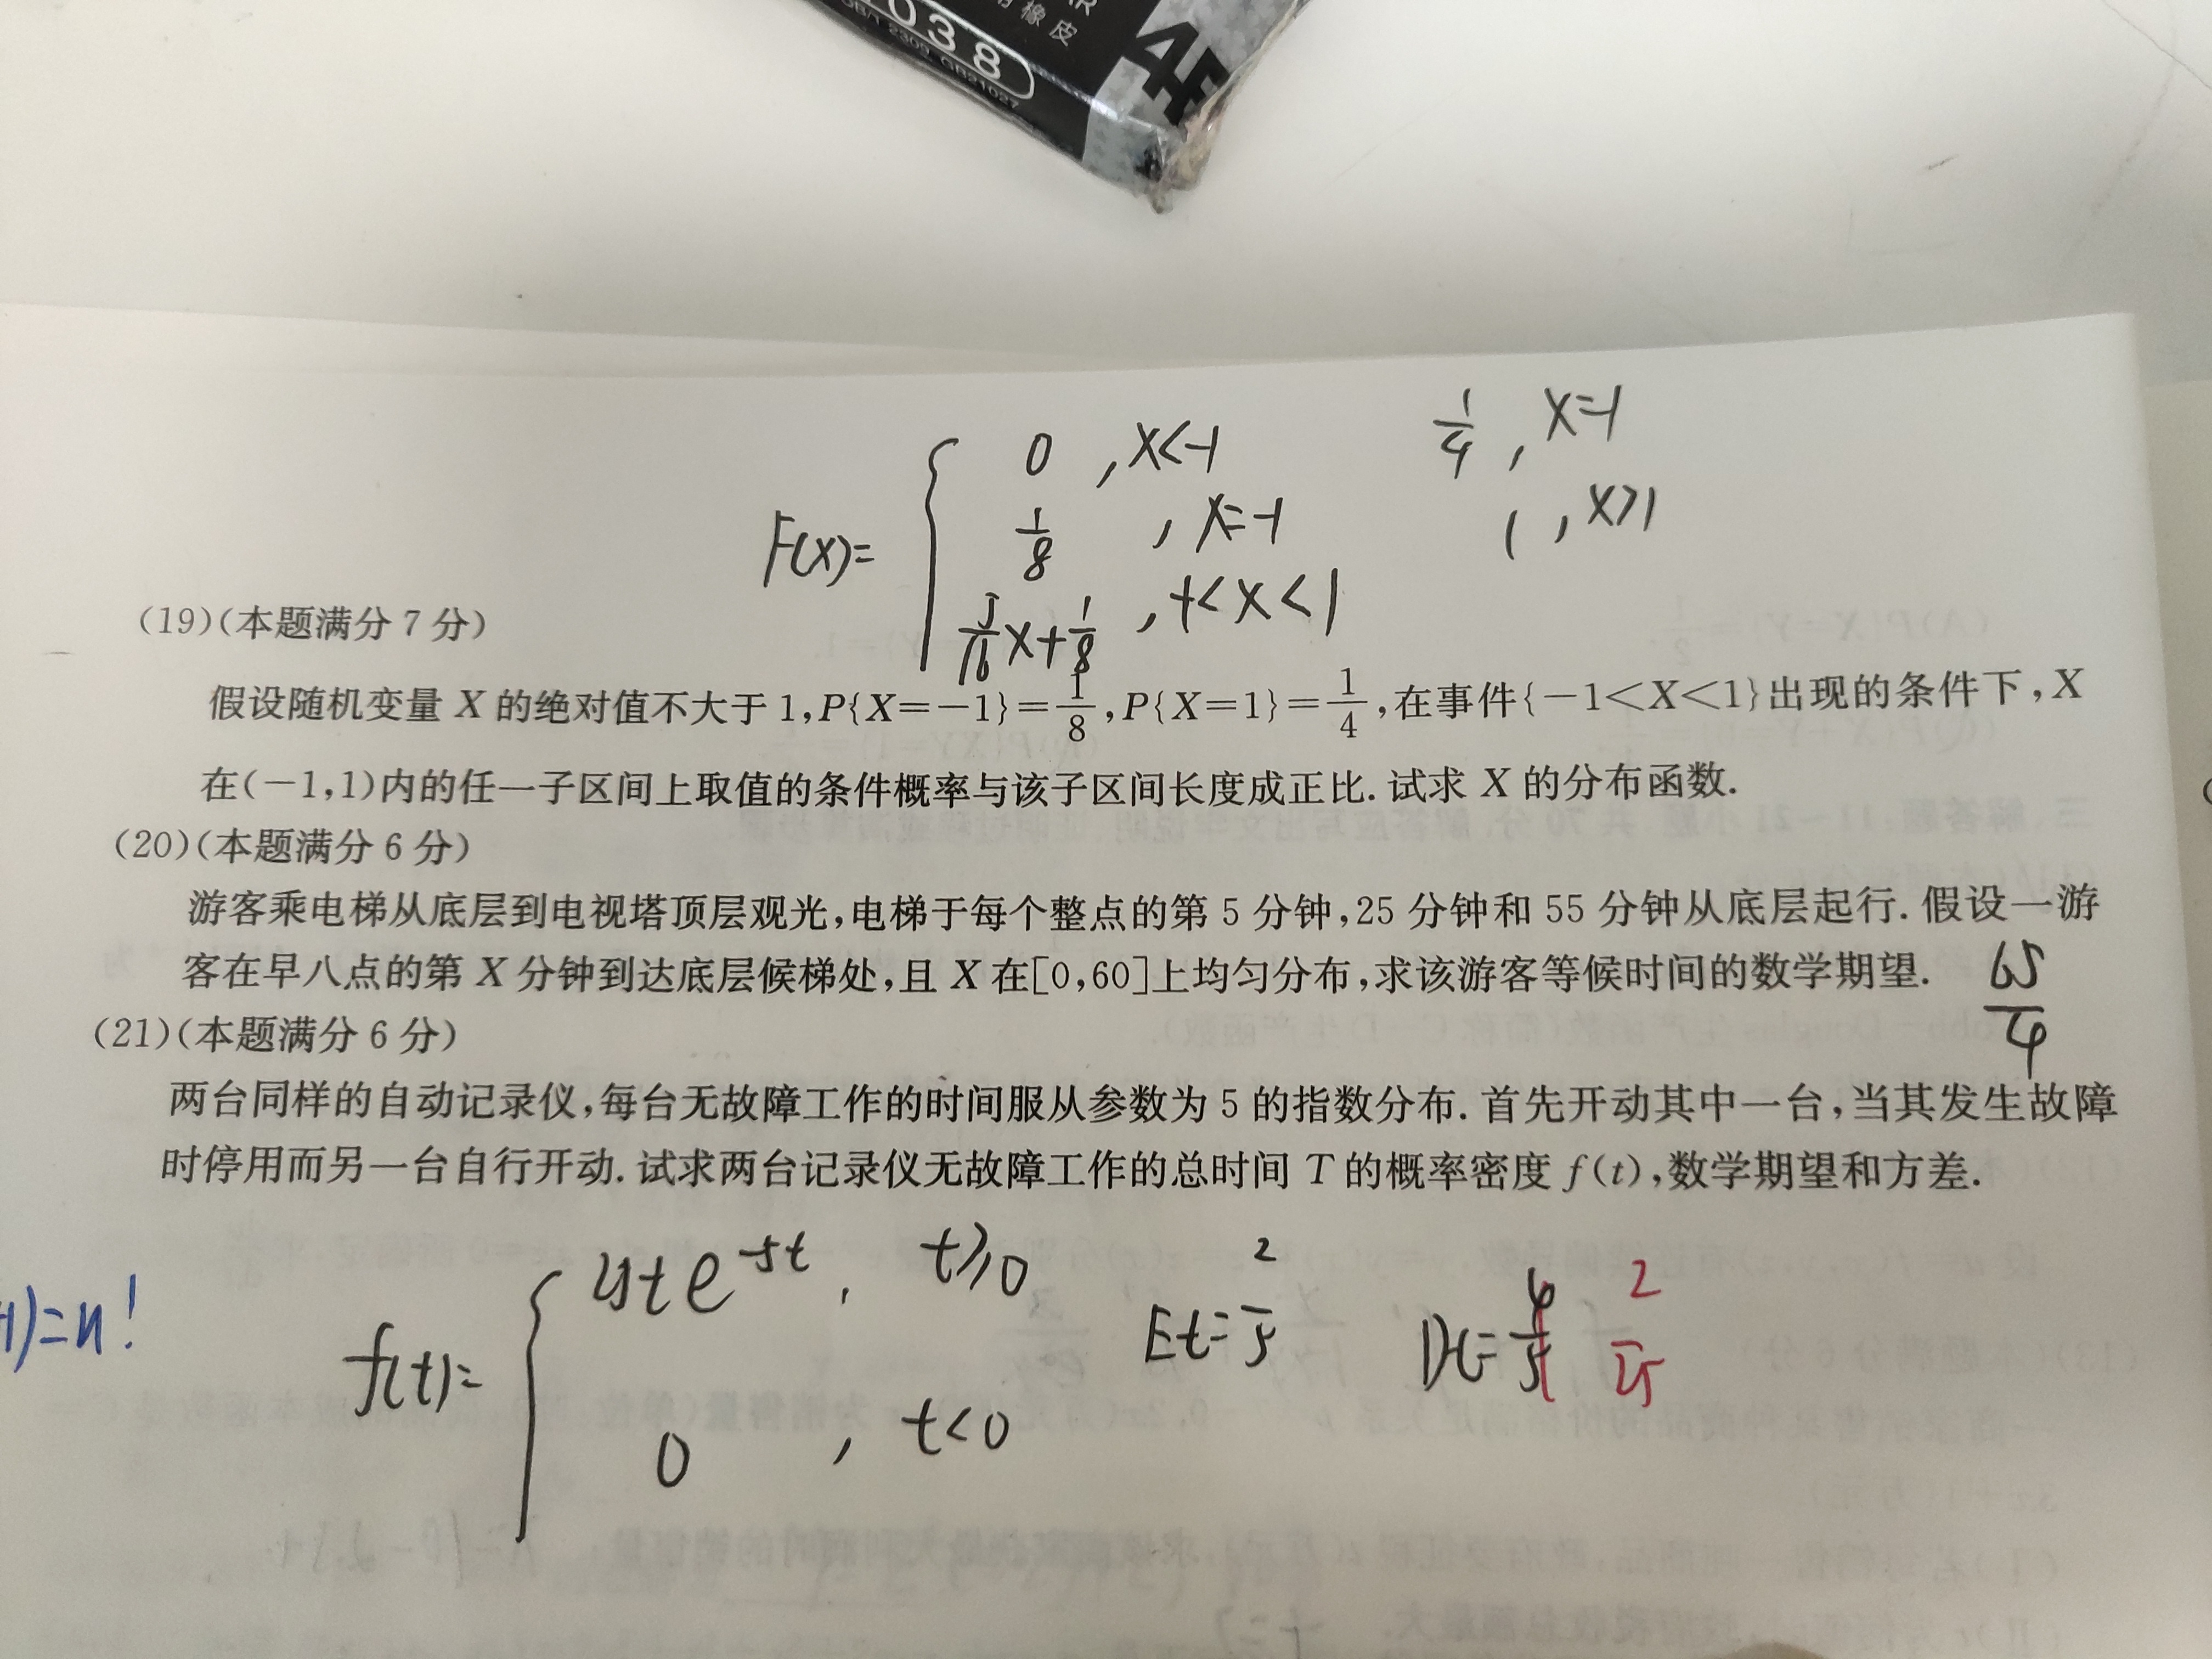 038
GB/T 2309 GB21027
橡皮
4B
F(x)= { 0 , x<-1
1/8 , x=-1
5/16 x+1/8 , -1<x<1
1/4 , x=1
1 , x>1
(19)(本题满分 7 分)
假设随机变量 X 的绝对值不大于 1,P{X=-1}=1/8,P{X=1}=1/4,在事件{-1<X<1}出现的条件下,X
在(-1,1)内的任一子区间上取值的条件概率与该子区间长度成正比.试求 X 的分布函数.
(20)(本题满分 6 分)
游客乘电梯从底层到电视塔顶层观光,电梯于每个整点的第 5 分钟,25 分钟和 55 分钟从底层起行.假设一游
客在早八点的第 X 分钟到达底层候梯处,且 X 在[0,60]上均匀分布,求该游客等候时间的数学期望.
65/4
(21)(本题满分 6 分)
两台同样的自动记录仪,每台无故障工作的时间服从参数为 5 的指数分布.首先开动其中一台,当其发生故障
时停用而另一台自行开动.试求两台记录仪无故障工作的总时间 T 的概率密度 f(t),数学期望和方差.
)=n!
f(t)= { 25te^{-5t} , t≥0
0 , t<0
Et=2/5
Dt= 2/25